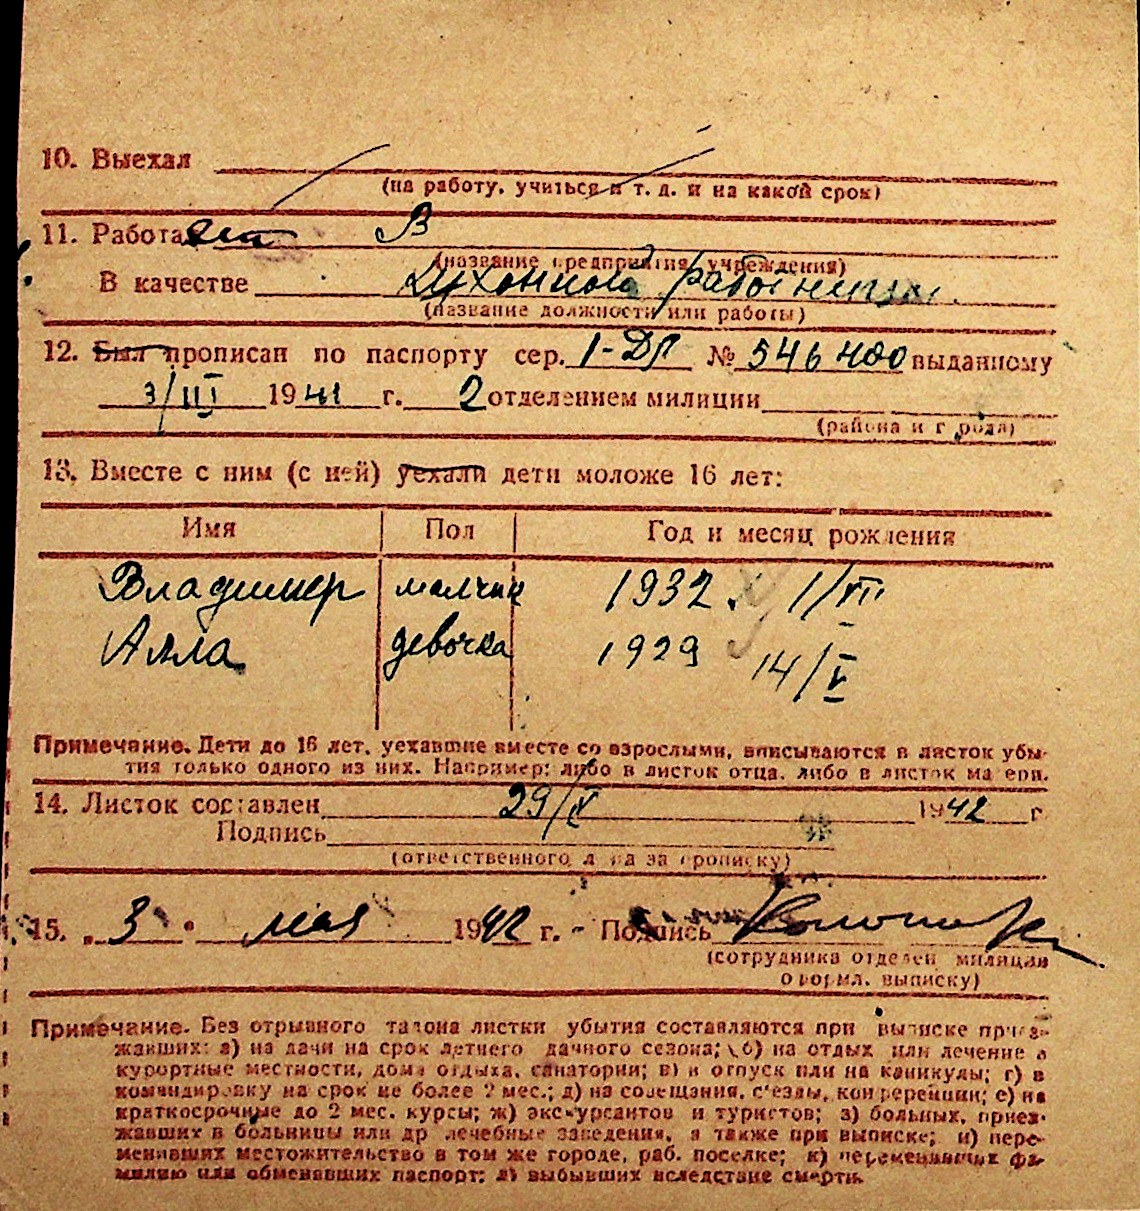 10. Выехал
(на работу, учиться и т. д. и на какой срок)
11. Работает В
(название предприятия, учреждения)
В качестве Кухонной работницы.
(название должности или работы)
12. Был прописан по паспорту сер. 1-ДЛ № 546400 выданному
3/III 1941 г. 2 отделением милиции
(района и города)
13. Вместе с ним (с ней) уехали дети моложе 16 лет:
Имя Пол Год и месяц рождения
Владимир мальчик 1932. 1/VII
Алла девочка 1929 14/V
Примечание. Дети до 16 лет, уехавшие вместе со взрослыми, вписываются в листок убы-
тия только одного из них. Например: либо в листок отца, либо в листок матери.
14. Листок составлен 29/IV 1942 г
Подпись
(ответственного лица за прописку)
15. „3" мая 1942 г. - Подпись
(сотрудника отделен милиции
оформл. выписку)
Примечание. Без отрывного талона листки убытия составляются при выписке приез-
жавших: а) на дачи на срок летнего дачного сезона; б) на отдых или лечение в
курортные местности, дома отдыха, санатории; в) в отпуск или на каникулы; г) в
командировку на срок не более 2 мес.; д) на совещания, съезды, конференции; е) на
краткосрочные до 2 мес. курсы; ж) экскурсантов и туристов; з) больных, приез-
жавших в больницы или др лечебные заведения, а также при выписке; и) пере-
менивших местожительство в том же городе, раб. поселке; к) переменивших фа-
милию или обменявших паспорт; л) выбывших вследствие смерти.